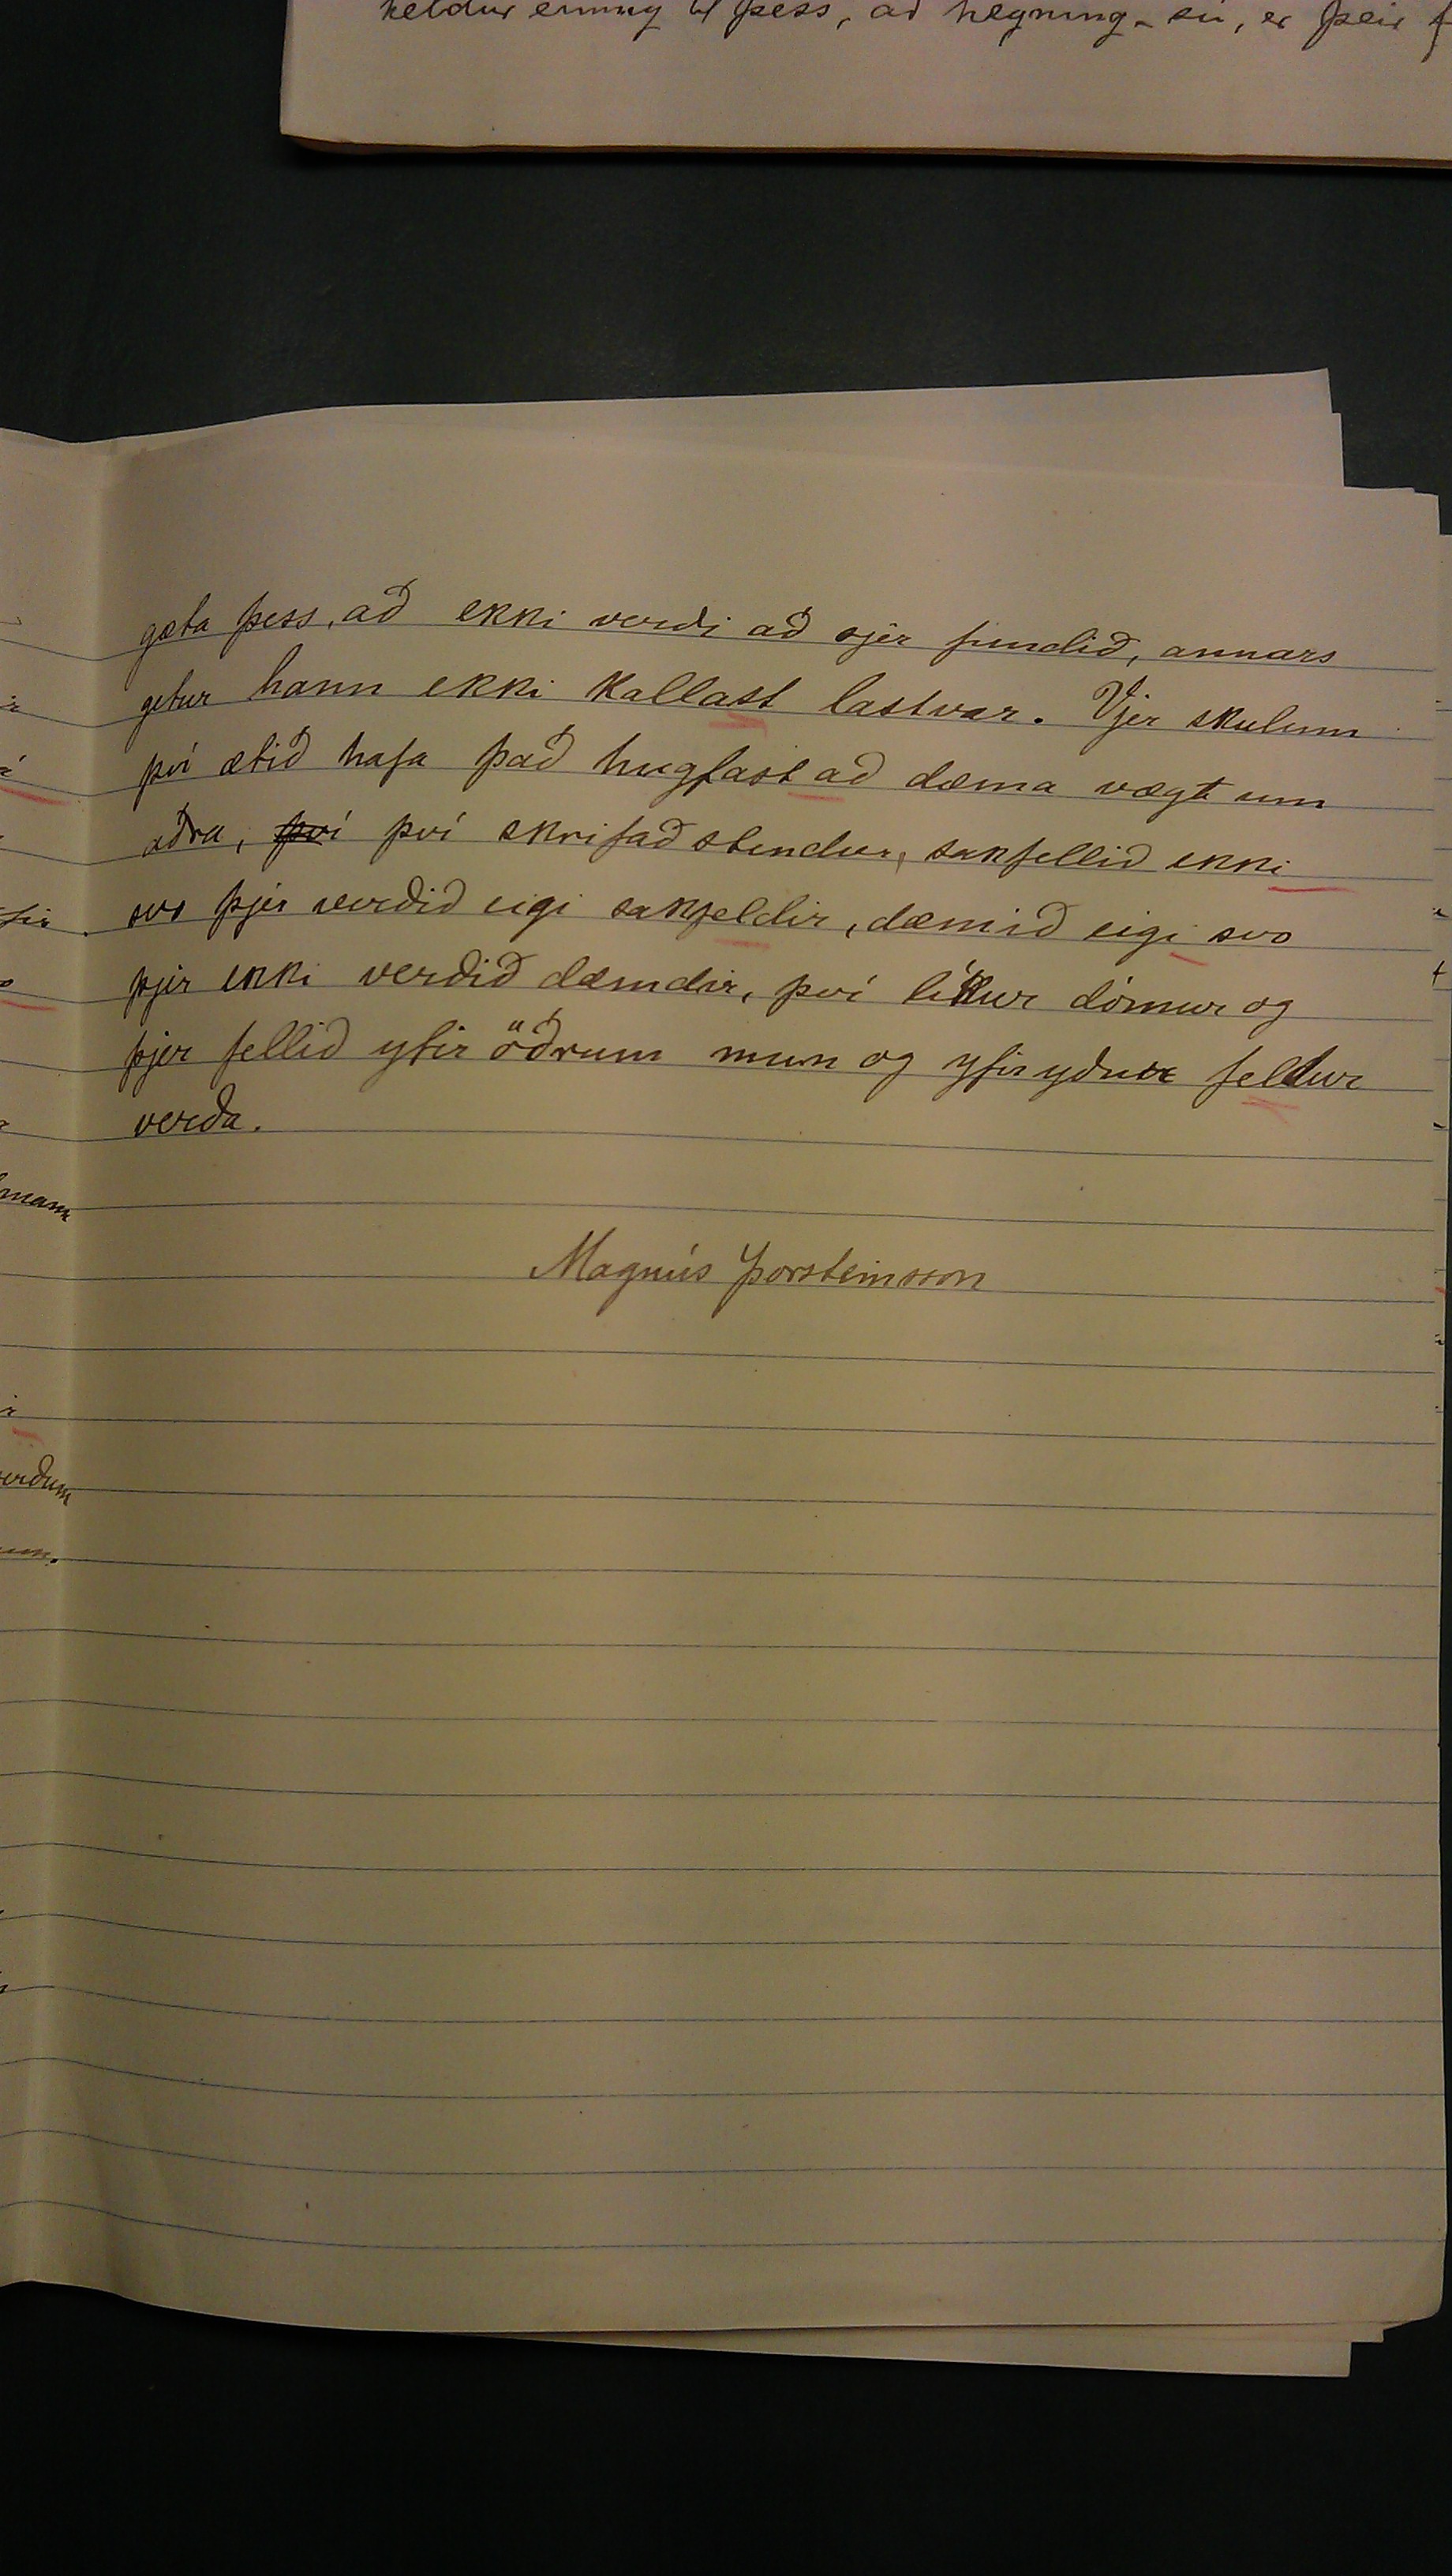 heldur einnig til þess, að hegning sú, er þeir
gæta þess, að ekki verði að sjer fundið, annars
getur hann ekki kallast lastvar. Vjer skulum
því ætið hafa það hugfast að dæma vægt um
aðra, því því skrifað stendur, sakfellið ekki
svo þjer verðið eigi sakfeldir, dæmið eigi svo
þjer ekki verðið dæmdir, því líkur dómur og
þjer fellið yfir öðrum mun og yfir yður feldur
verða.
mann
Magnús Þorsteinsson
verðum